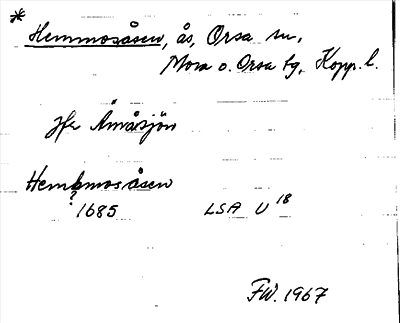 *
Hemmosåsen, ås, Orsa sn,
Mora o. Orsa tg, Kopp. l.
Jfr Åmåsjön
Hembmosåsen
?
1685 LSA U 18
FW. 1967